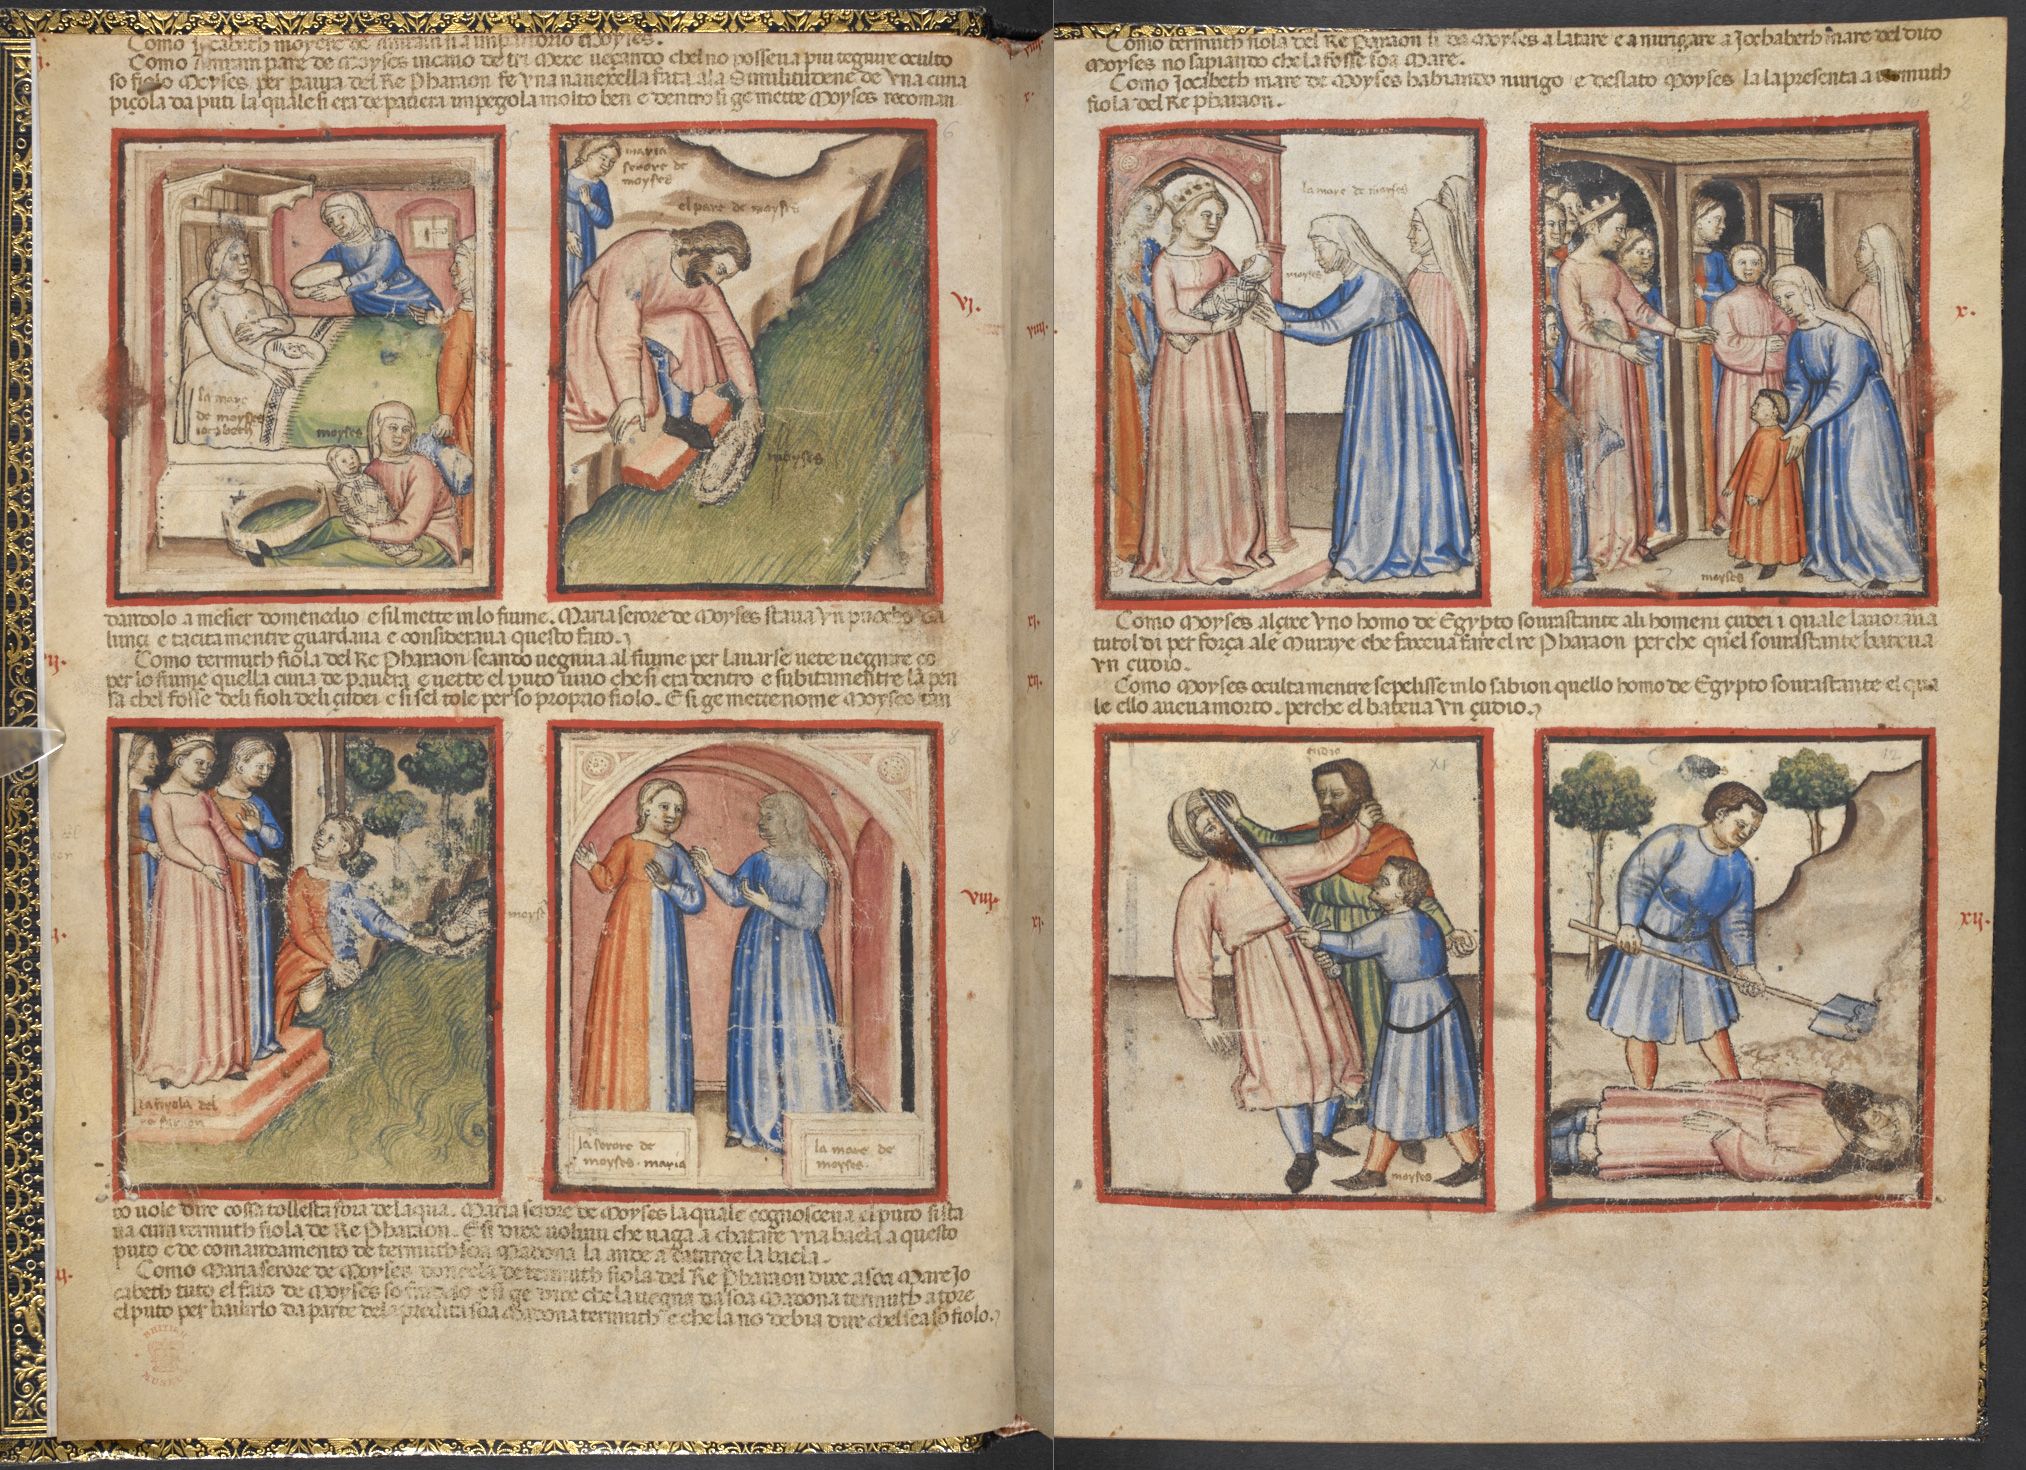 Como Iocabeth moyere de Amram si a inparturio Moyses.
Como Amram pare de Moyses in cavo de tri mexe veçando chel no posseva piu tegnire oculto
so fiolo Moyses per paura del Re Pharaon fe vna navexella fata ala similitudene de vna cuna
piçola da puti la quale si era de paviera impegola molto ben e dentro si ge mette Moyses recoman
maria
serore de
moyses
el pare de moyses
la mare
de moyses
iocabeth
moyses
moyses
VI.
dandolo a mesier domenedio e sil mette in lo fiume. Maria serore de Moyses stava vn puocho da
lunçi e tacitamentre guardava e considerava questo fato.
Como termuth fiola del Re Pharaon seando vegnua al fiume per lavarse vete vegnire co
per lo fiume quella cuna de pavera e vette el puto vivo che si era dentro e subitamentre la pen
sa chel fosse deli fioli deli çudei e si sel tole per so proprio fiolo. E si ge mette nome Moyses tan
moyse
maria
la fiyola del
re faraon
la serore de
moyses. maria
la mare de
moyses.
VIII.
to vole dire cossa tollesta fora delaqua. Maria serore de Moyses la quale cognosceva el puto si sta
va cum termuth fiola de Re Pharaon. E si dixe volivu che vaga a chatare vna baela a questo
puto e de comandamento de termuth soa Madona la ande a catarge la baela.
Como Maria serore de Moyses donçela de termuth fiola del Re Pharaon dixe a soa Mare Jo
cabeth tuto el fato de Moyses so e si ge dixe che la vegna da soa Madona termuth a tore
el puto per bailirlo da parte dela predita soa Madona termuth e che la no debia dire chel sea so fiolo.
BRITISH
MUSEUM
Como termuth fiola del Re Pharaon si da Moyses a latare e a nurigare a Jochabeth mare del dito
Moyses no sapiando che la fosse soa Mare.
Como Jocabeth mare de Moyses habiando nurigo e deslato Moyses la lapresenta a termuth
fiola del Re Pharaon.
la mare de moyses
moyses
moyses
X.
Como Moyses alçixe vno homo de Egypto sovrastante ali homeni çudei i quale lavorava
tutol di per força ale Muraye che faxeva fare el re Pharaon perche quel sovrastante bateva
vn çudio.
Como Moyses ocultamentre sepelisse in lo sabion quello homo de Egypto sovrastante el qua
le ello aveva morto. perche el bateva vn çudio.
cudio
XI
12
moyses
XII.